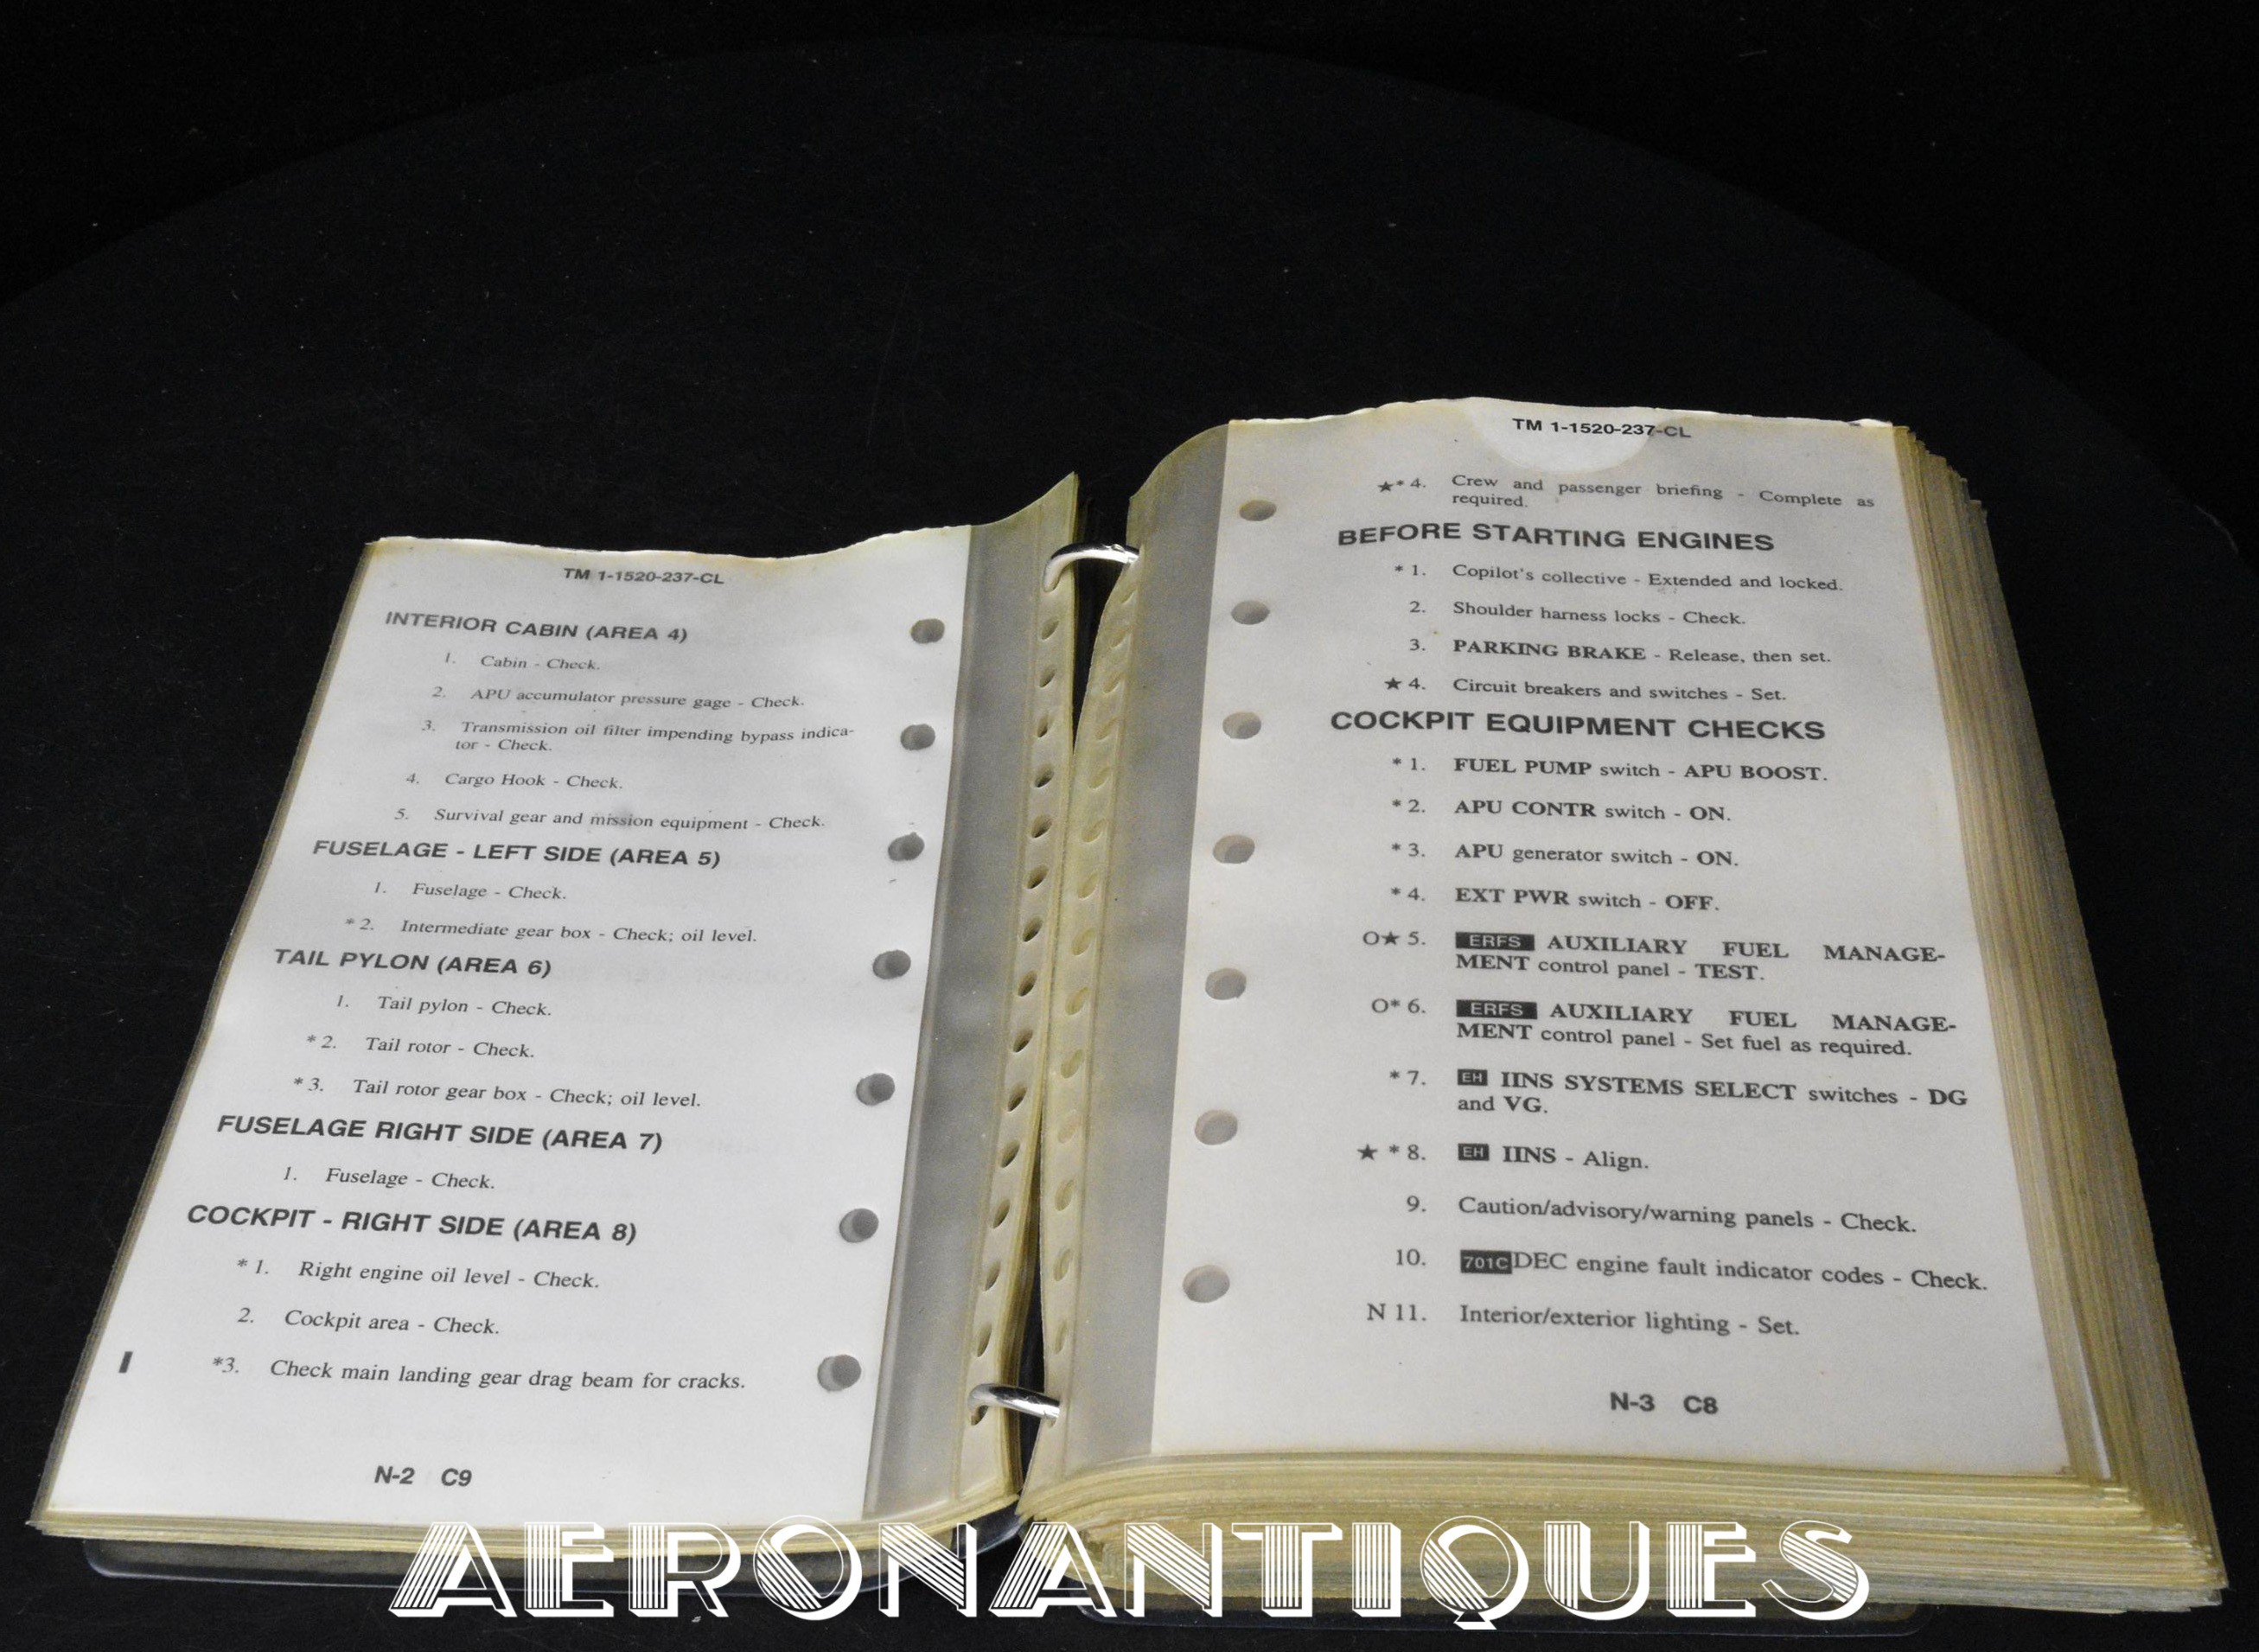 TM 1-1520-237-CL
INTERIOR CABIN (AREA 4)
1. Cabin - Check.
2. APU accumulator pressure gage - Check.
3. Transmission oil filter impending bypass indica-
tor - Check.
4. Cargo Hook - Check.
5. Survival gear and mission equipment - Check.
FUSELAGE - LEFT SIDE (AREA 5)
1. Fuselage - Check.
* 2. Intermediate gear box - Check; oil level.
TAIL PYLON (AREA 6)
1. Tail pylon - Check.
* 2. Tail rotor - Check.
* 3. Tail rotor gear box - Check; oil level.
FUSELAGE RIGHT SIDE (AREA 7)
1. Fuselage - Check.
COCKPIT - RIGHT SIDE (AREA 8)
* 1. Right engine oil level - Check.
2. Cockpit area - Check.
*3. Check main landing gear drag beam for cracks.
N-2 C9
TM 1-1520-237-CL
★* 4. Crew and passenger briefing - Complete as
required.
BEFORE STARTING ENGINES
* 1. Copilot's collective - Extended and locked.
2. Shoulder harness locks - Check.
3. PARKING BRAKE - Release, then set.
★ 4. Circuit breakers and switches - Set.
COCKPIT EQUIPMENT CHECKS
* 1. FUEL PUMP switch - APU BOOST.
* 2. APU CONTR switch - ON.
* 3. APU generator switch - ON.
* 4. EXT PWR switch - OFF.
O★ 5. ERFS AUXILIARY FUEL MANAGE-
MENT control panel - TEST.
O* 6. ERFS AUXILIARY FUEL MANAGE-
MENT control panel - Set fuel as required.
* 7. EH IINS SYSTEMS SELECT switches - DG
and VG.
★ * 8. EH IINS - Align.
9. Caution/advisory/warning panels - Check.
10. 701C DEC engine fault indicator codes - Check.
N 11. Interior/exterior lighting - Set.
N-3 C8
AERONANTIQUES